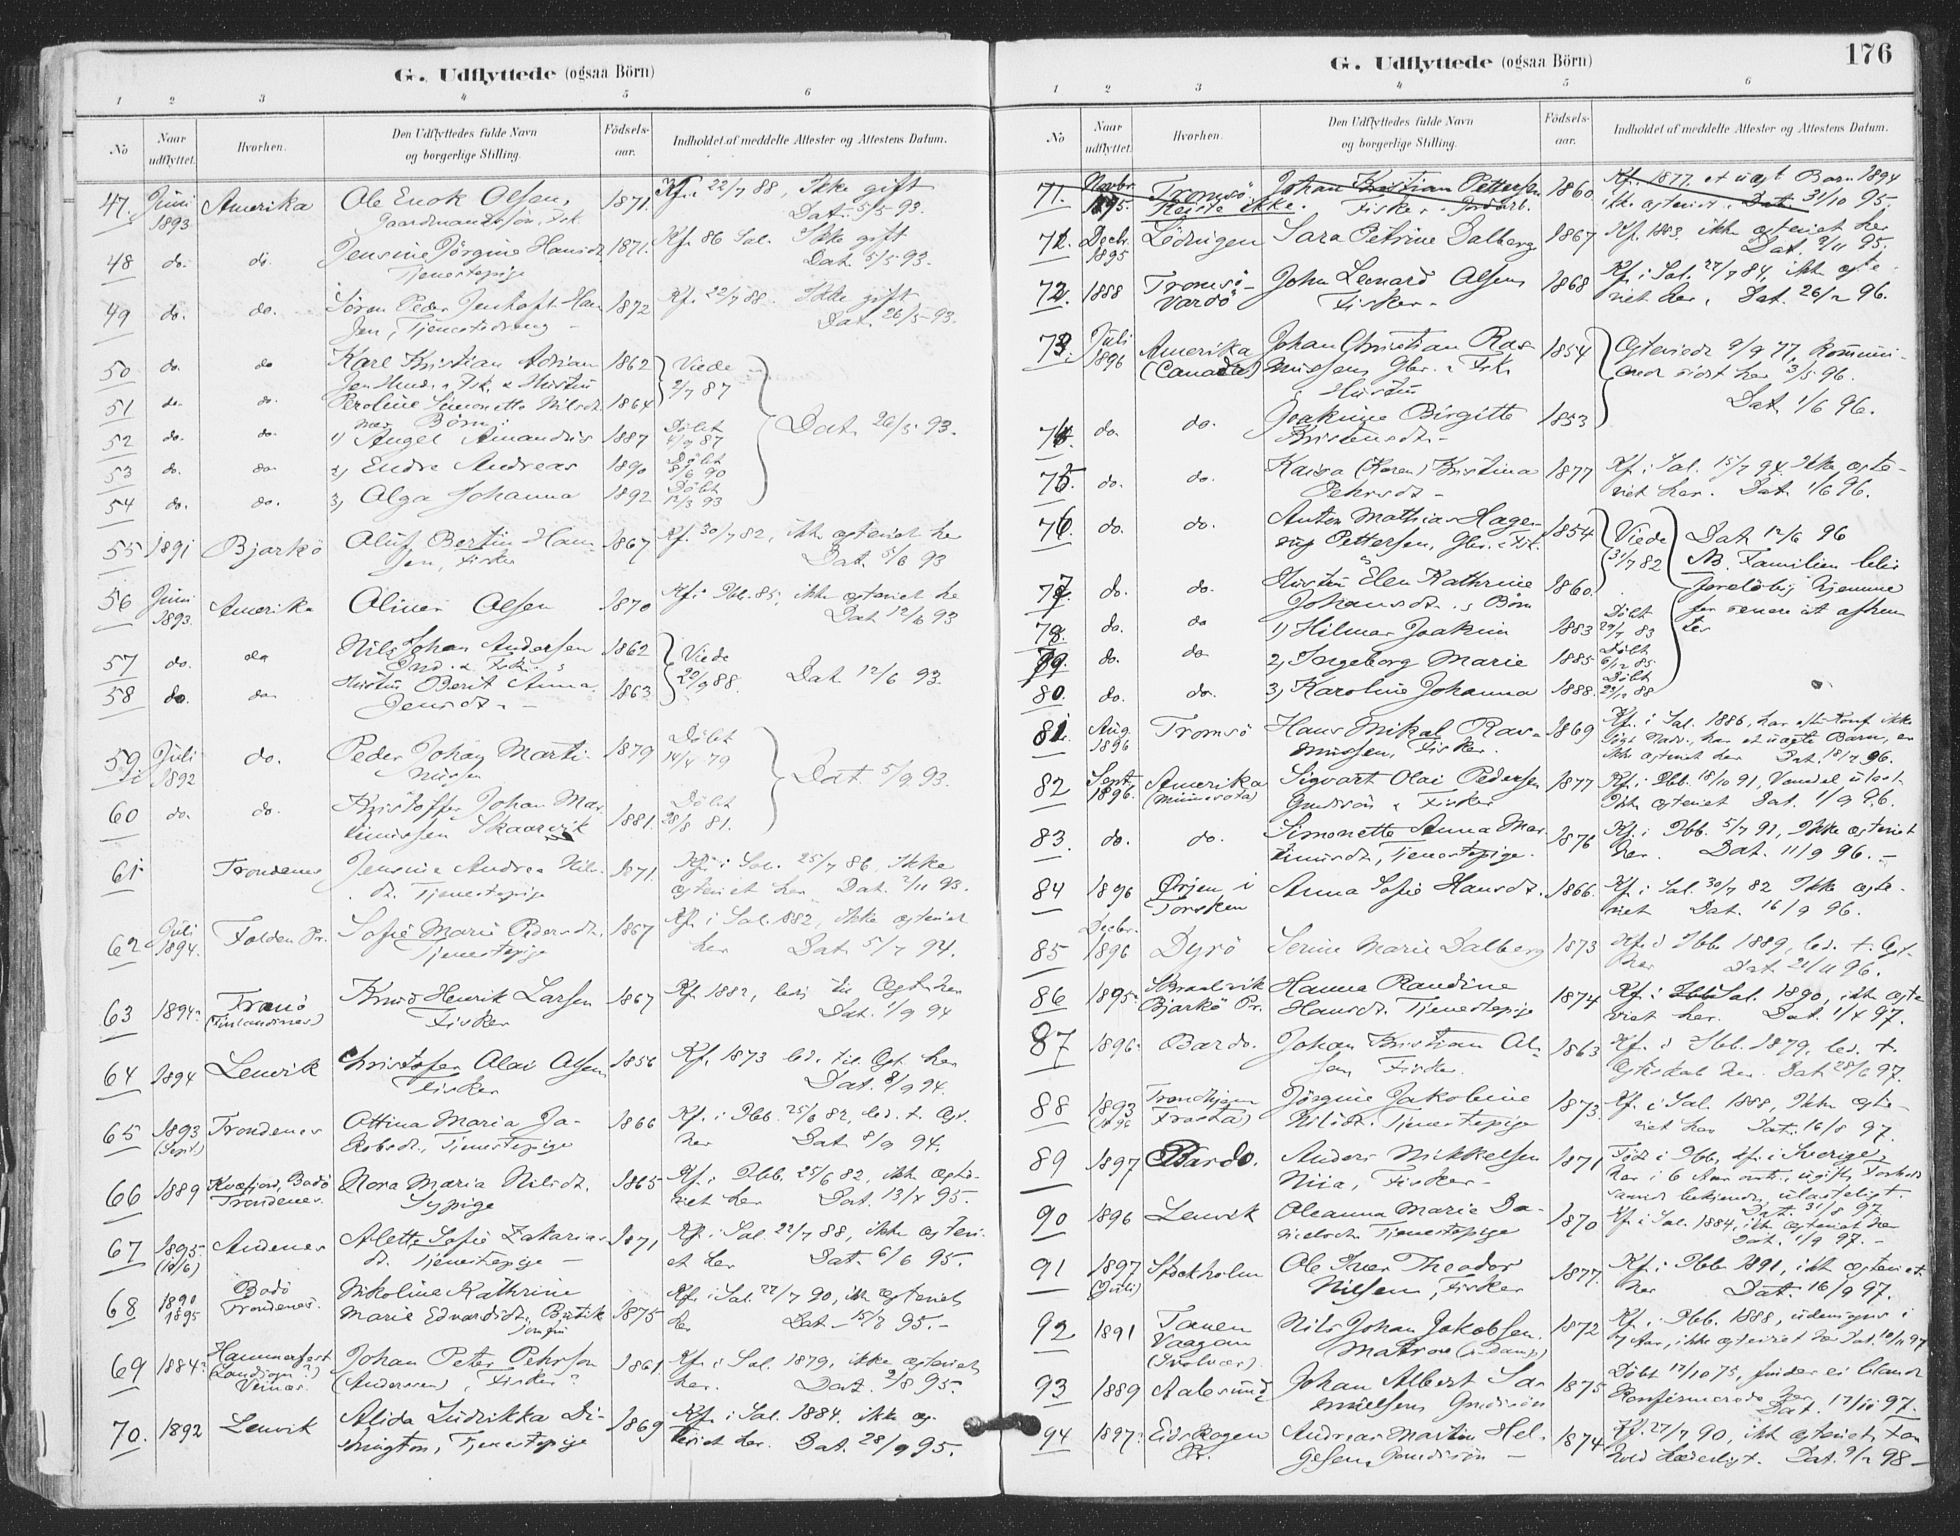 G. Udflyttede (ogsaa Börn)
1 2 3 4 5 6
No
Naar udflyttet.
Hvorhen.
Den Udflyttedes fulde Navn og borgerlige Stilling.
Födselsaar.
Indholdet af meddelte Attester og Attestens Datum.
47. Juni 1893 Amerika Ole Enok Olsen, 1871. Kf. 22/7 88, Ikke gift
Gaardmandssøn, Fsk. Dat. 5/5 93.
48 do. do. Jensine Jörgine Hansdt. 1871. Kf. 86 Sal. Ikke gift
Tjenestepige Dat. 5/5 93.
49 do. do. Sören Peder Jenhoft Han- 1872 Kf. 22/7 88. Ikke gift
sen, Tjenestedreng - Dat. 26/5 93.
50 do. do Karl Kristian Adrian 1862 Viede
2/7 87
51 do. do. Peroline Simonette Nilsdt. 1864
Börn: Dat. 26/5 93.
52 do. do. 1) Angel Amandus 1887 Döbt 4/9 87
53 do. do. 2, Endre Andreas 1890 Döbt 8/6 90
54 do. do. 3, Alga Johanna 1892 Döbt 12/3 93
55 1891 Bjarkö Oluf Bertin Han- 1867 Kf. 30/7 82, ikke gsteviet he
sen, Fisker Dat. 5/6 93
56 Juni 1893. Amerika Oliver Olsen 1870 Kf. i Ibb. 85, ikke gsteviet he
Dat 12/6 93
57 do. do Nils Johan Andersen 1862 Viede
Ind. & Fsk. 20/9 88. Dat 12/6 93.
58 do do Hustru Berit Anna 1863
Jensdt. -
59 Juli 1892 do. Peder Johan Marti- 1879 Döbt 14/4 79
nussen Dat. 5/9 93.
60 do. do. Kristoffer Johan Mar- 1881. Döbt 28/8 81.
tinussen Skaarvik
61. Trondenes Jensine Andrea Nils- 1871. Kf. i Sal. 25/7 86. Ikke
dt. Tjenestepige gsteviet her Dat. 2/11 93.
62 Juli 1894. Folden Pr. Sofie Marie Pedersdt. 1867 Kf. i Sal. 1882, ikke gsteviet
Tjenestepige her Dat. 5/7 94.
63 1894. Tranö Knud Henrik Larsen 1867 Kf. 1882, led. til Ogst. her
(Finlandsnes) Fisker Dat. 1/9 94
64 1894 Lenvik Christofer Olai Olsen 1856 Kf. 1873 led. til Ogt. her
Fisker Dat. 8/9 94.
65 1893 (Sept) Trondenes Ottina Maria Ja- 1866 Kf. i Ibb. 25/6 82, led. t. Ogt.
kobsdt., Tjenestepige her Dat. 8/9 94.
66 1889 Kvæfjord, Bodö Nora Maria Nilsdt. 1865 Kf. i Ibb. 25/6 82, ikke gste-
Trondenes. Sypige viet her Dat. 13/4 95.
67 1895. (10/6) Andenes Alette Sofie Zakarias- 1871 Kf. i Sal. 22/7 88, ikke gstevi-
dt. Tjenestepige - et her Dat. 6/6 95.
68 1890 1895 Bodö Nikoline Kathrine Kf. i Sal. 27/7 90, ikke gsteviet
Trondenes. Marie Edvardsdt., Butik 1875 her Dat. 15/8 95. -
jomfru
69 1884? Hammerfest Johan Peter Pehrson 1861. Kf. i Sal. 1879, ikke gsteviet
(Anderssen), Fisker? her. Dat. 9/8 95.
70. 1892 Lenvik Alida Ludrikka Di- 1869 Kf. i Sal. 1884. ikke gs-
mington, Tjenestepige teviet her. Dat. 28/9 95.
176
G. Udflyttede (ogsaa Börn)
1 2 3 4 5 6
No
Naar udflyttet.
Hvorhen.
Den Udflyttedes fulde Navn og borgerlige Stilling.
Födselsaar.
Indholdet af meddelte Attester og Attestens Datum.
71. Novbr 1895. Tromsö. Johan Kristian Pettersen 1860. Kf. 1877. et uægt Barn 1894
Reiste ikke. Fisker. Jordarb. ikke gsteviet. Dat. 31/10 95.
71. Decbr. 1895 Lödingen Sara Petrine Dalberg 1867 Kf. 1883, ikke gsteviet her
Dat. 9/11 95.
72. 1888 Tromsö- Johan Leonard Olsen 1868 Kf. i Sal. 27/7 84, ikke gste-
Vardö Fisker. viet her. Dat. 26/2 96.
73. Juli 1896 Amerika Johan Christian Ras- 1854 Gsteviedt 9/9 77, Kommuni-
(Canada) mussen, Gbr. & Fsk. ceret sidst her 3/5 96.
Hustru Dat. 1/6 96.
74. do. do. Joakime Birgitte 1853
Kristensdt. -
75. do. do. Kaisa (Karen) Kristina 1877 Kf. i Sal. 15/7 94. Ikke gste-
Pehrsdt. - viet her. Dat. 1/6 96.
76. do do. Anton Mathias Hage- 1854 Viede Dat. 12/6 96
Pettersen, Gbr. & Fsk. 31/7 82 NB. Familien blev
77. do. do. Hustru Elen Kathrine 1860. foreløbig hjemme
Johansdt. & Börn for senere at afhen-
78. do. do 1) Hilmar Joakim 1883 Döbt 29/7 83 tes
79. do. do. 2, Ingeborg Marie 1885 Döbt 6/12 85
80. do. do. 3, Karoline Johanna 1888. Döbt 23/12 88
81. Aug. 1896 Tromsö Hans Mikal Ras- 1869 Kf. i Sal. 1886, har eft. Konf. ikke
mussen, Fisker. sögt Nadv., har et uægte Barn, er
ikke gsteviet her Dat. 18/7 96.
82 Sept. 1896. Amerika Sigvart Olai Pedersen 1877 Kf. i Ibb. 18/10 91, Vandel ulast.
(Minnesota) Gmdssön & Fisker Ikke gsteviet Dat. 1/9 96.
83. do. do. Simonette Anna Mar- 1876 Kf. i Ibb. 5/7 91, Ikke gsteviet
tinusdt., Tjenestepige. her. Dat. 11/9 96. -
84 1896 Ørjen i Anna Sofie Hansdt. 1866. Kf. i Sal. 30/7 82 Ikke gste-
Torsken viet Dat. 16/9 96.
85 Decbr. 1896 Dyrö Serine Marie Dalberg 1873 Kf. i Ibb. 1889, led. t. Ogt.
her Dat. 21/11 96.
86 1895. Strandvik Hanna Randine 1874 Kf. i Sal. 1890, ikke gste-
Bjarkö Pr. Hansdt. Tjenestepige viet her. Dat. 1/4 97.
87 1896. Bardo. Johan Kristian Ol- 1863 Kf. i Ibb. 1879, led. t.
sen Fisker. Ogteskab her. Dat 28/6 97.
88 1893 Trondhjem Jörgine Jakobine 1873. Kf. i Sal. 1888, Ikke gste-
Frosta) Nilsdt. Tjenestepige viet her Dat. 16/8 97.
89 1897 Bardo. Anders Mikkelsen 1871 Född i Ibb., kf. i Sverige,
Niia, Fisker. her i 6 Aar, ugift, Forhold
saavidt bekjendt, ulasteligt.
Dat. 31/8 97.
90 1896 Lenvik Oleanna Marie Da- 1870 Kf. i Sal. 1884, ikke gsteviet her
nielsdt. Tjenestepige Dat. 1/9 97. -
91 1897 (Juli) Stockholm Ole Iver Theodor 1877. Kf. i Ibb. 1891, ikke gsteviet
Nilsen, Fisker her Dat. 16/9 97.
92 1891 Tanen Nils Johan Jakobsen. 1872 Kf. i Ibb. 1888, udensogns i
Vaagan Matros (Damp) 7 Aar, ikke gsteviet her Dat. 10/11 97
(Svolvær).
93 1889 Aalesund Johan Albert Sa- 1875 Döbt 12/10 75, findes ei blandt
muelsen Gmdssön Konfirmerede her. Dat. 17/11 97.
94 1897. Eidskogen Andreas Martin Hel- 1874 Kf. 27/7 90, ikke gsteviet, For-
Pr. gesen, Gmdssön - hold hæderligt. Dat. 9/2 98 -